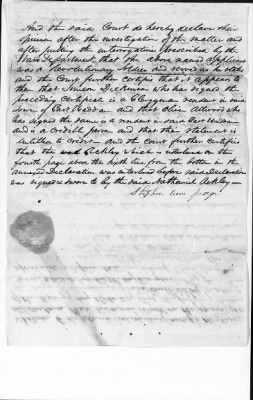 And the said Court do hereby declare their
opinion after the investigation of the matter and
after putting the interrogatories prescribed by the
War Department, that the above named applicant
was a Revolutionary Soldier and served as he states
and the Court further certifies that it appears to
them that Simeon Dickinson who has signed the
preceding Certificate is a Clergyman resident in said
town of East Haddam and that Olive Attwood who
has signed the same is a resident in said East Haddam
and is a credible person and that their statement is
entitled to credit — And the Court further certifies
that the word Ackley which is interlined on the
fourth page above the sixth line from the bottom in the
annexed Declaration was interlined before said Declaration
was signed & sworn to by the said Nathaniel Ackley —
Stephen Judge